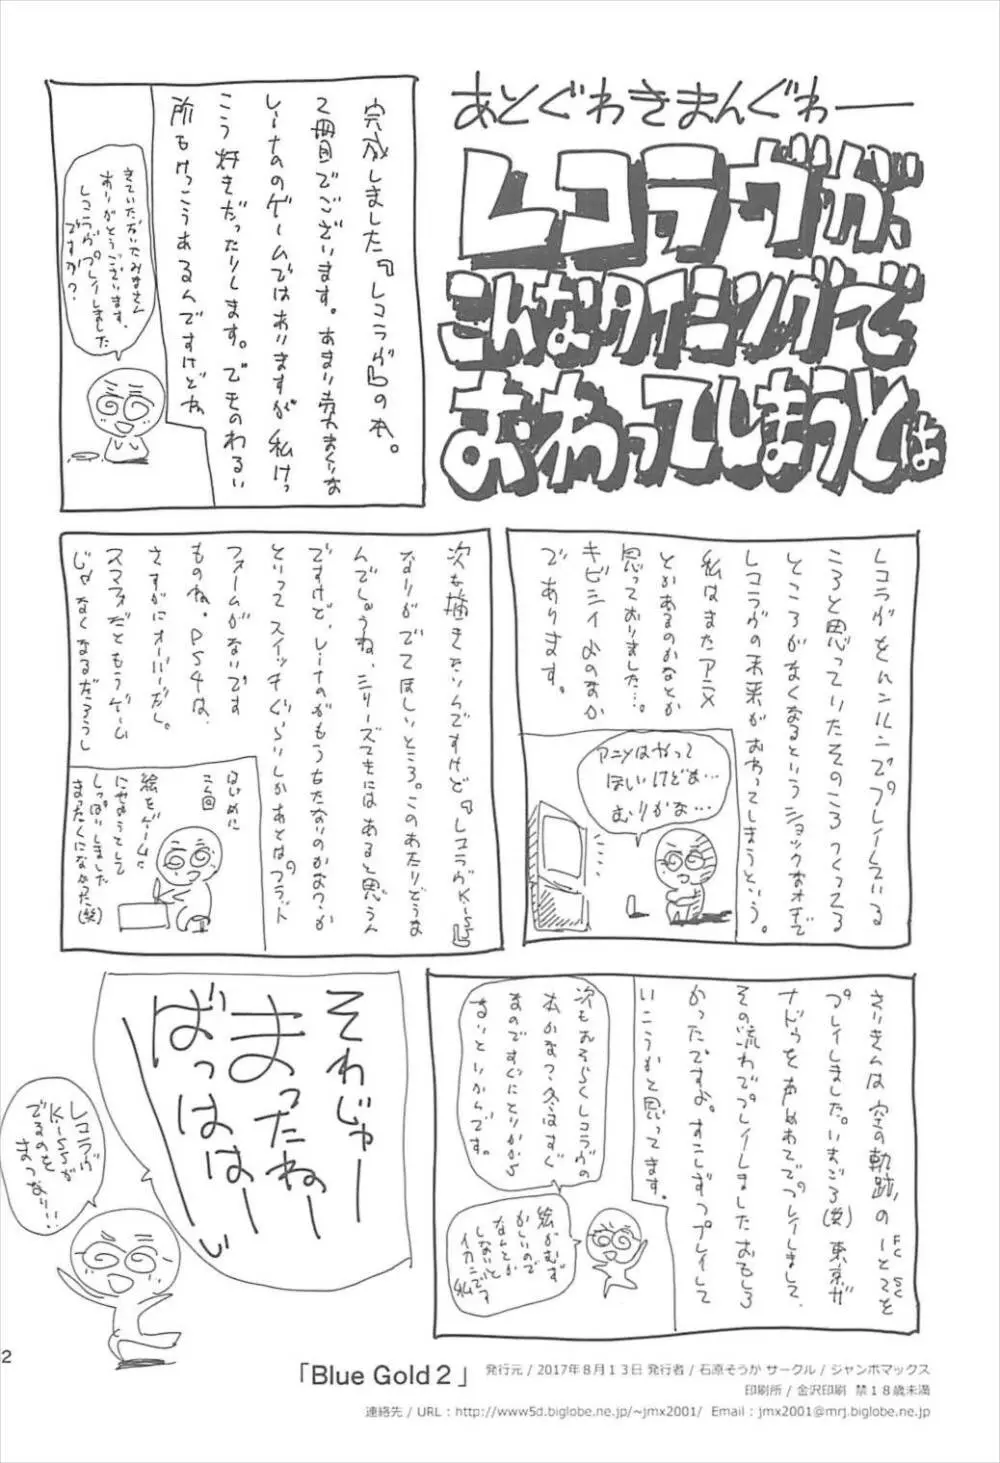 あとぐわきまんぐわー
レコラヴが、
こんなタイミングで
おわってしまうとは
完成しました『レコラヴ』の本。
2冊目でございます。あまり売れまくりな
レーナのゲームではありますが私けっ
こう好きだったりします。でもわるい
所もけっこうあるんですけどね
きていただいたみなさん
ありがとうございます。
レコラヴプレイしました
ですか?
レコラヴをハンルニでプレイしている
ころと思っていたそのころつくってる
ところがなくなるというショックなオチで
レコラヴの未来がおわってしまうという。
私はまたアニメ
とかあるのかなとか
思っておりました…。
キビシイよのなか
であります。
アニメはやって
ほしいけどぬ…
むりかな…
次も描きたいんですけど『レコラヴK-iSS』
なりがでてほしいところ。このあたりどうな
んでしょうね、シリーズてきにはあると思うん
ですけど、レーナのがもうちたないのかなウ・か
といってスイッチぐらいしかあとはプラット
フォームがないです
ものね。PS4は、
さすがにオーバーだし。
スマフォだともうゲーム
じゃなくなるだろうし
はじめに
この回
絵をゲームに
にせようとして
しっぱいしました
まったくにならなかった(笑)
さいきんは空の軌跡のFCとSCを
プレイしました。いまごろ(笑)東京ザ
ナドゥをあわせてプレイしまして、
その流れでプレイしましたおもしろ
かったですよ。すこしずつプレイして
いこうかと思ってます。
次もおそらくレコラヴの
本かなっ?冬はすぐ
まのですぐにとりかから
ないといかんです。
絵がむず
かしいので
なんとか
しないと
イカンです
私
そわじゃー
まったねー
ばっははーい
レコラヴ
K-iSSが
でるのを
まつなり!!
2
「Blue Gold 2」 発行元 / 2017年8月13日 発行者 / 石原そうか サークル / ジャンボマックス
印刷所 / 金沢印刷 禁18歳未満
連絡先 / URL : http://www5d.biglobe.ne.jp/~jmx2001/ Email : jmx2001@mrj.biglobe.ne.jp